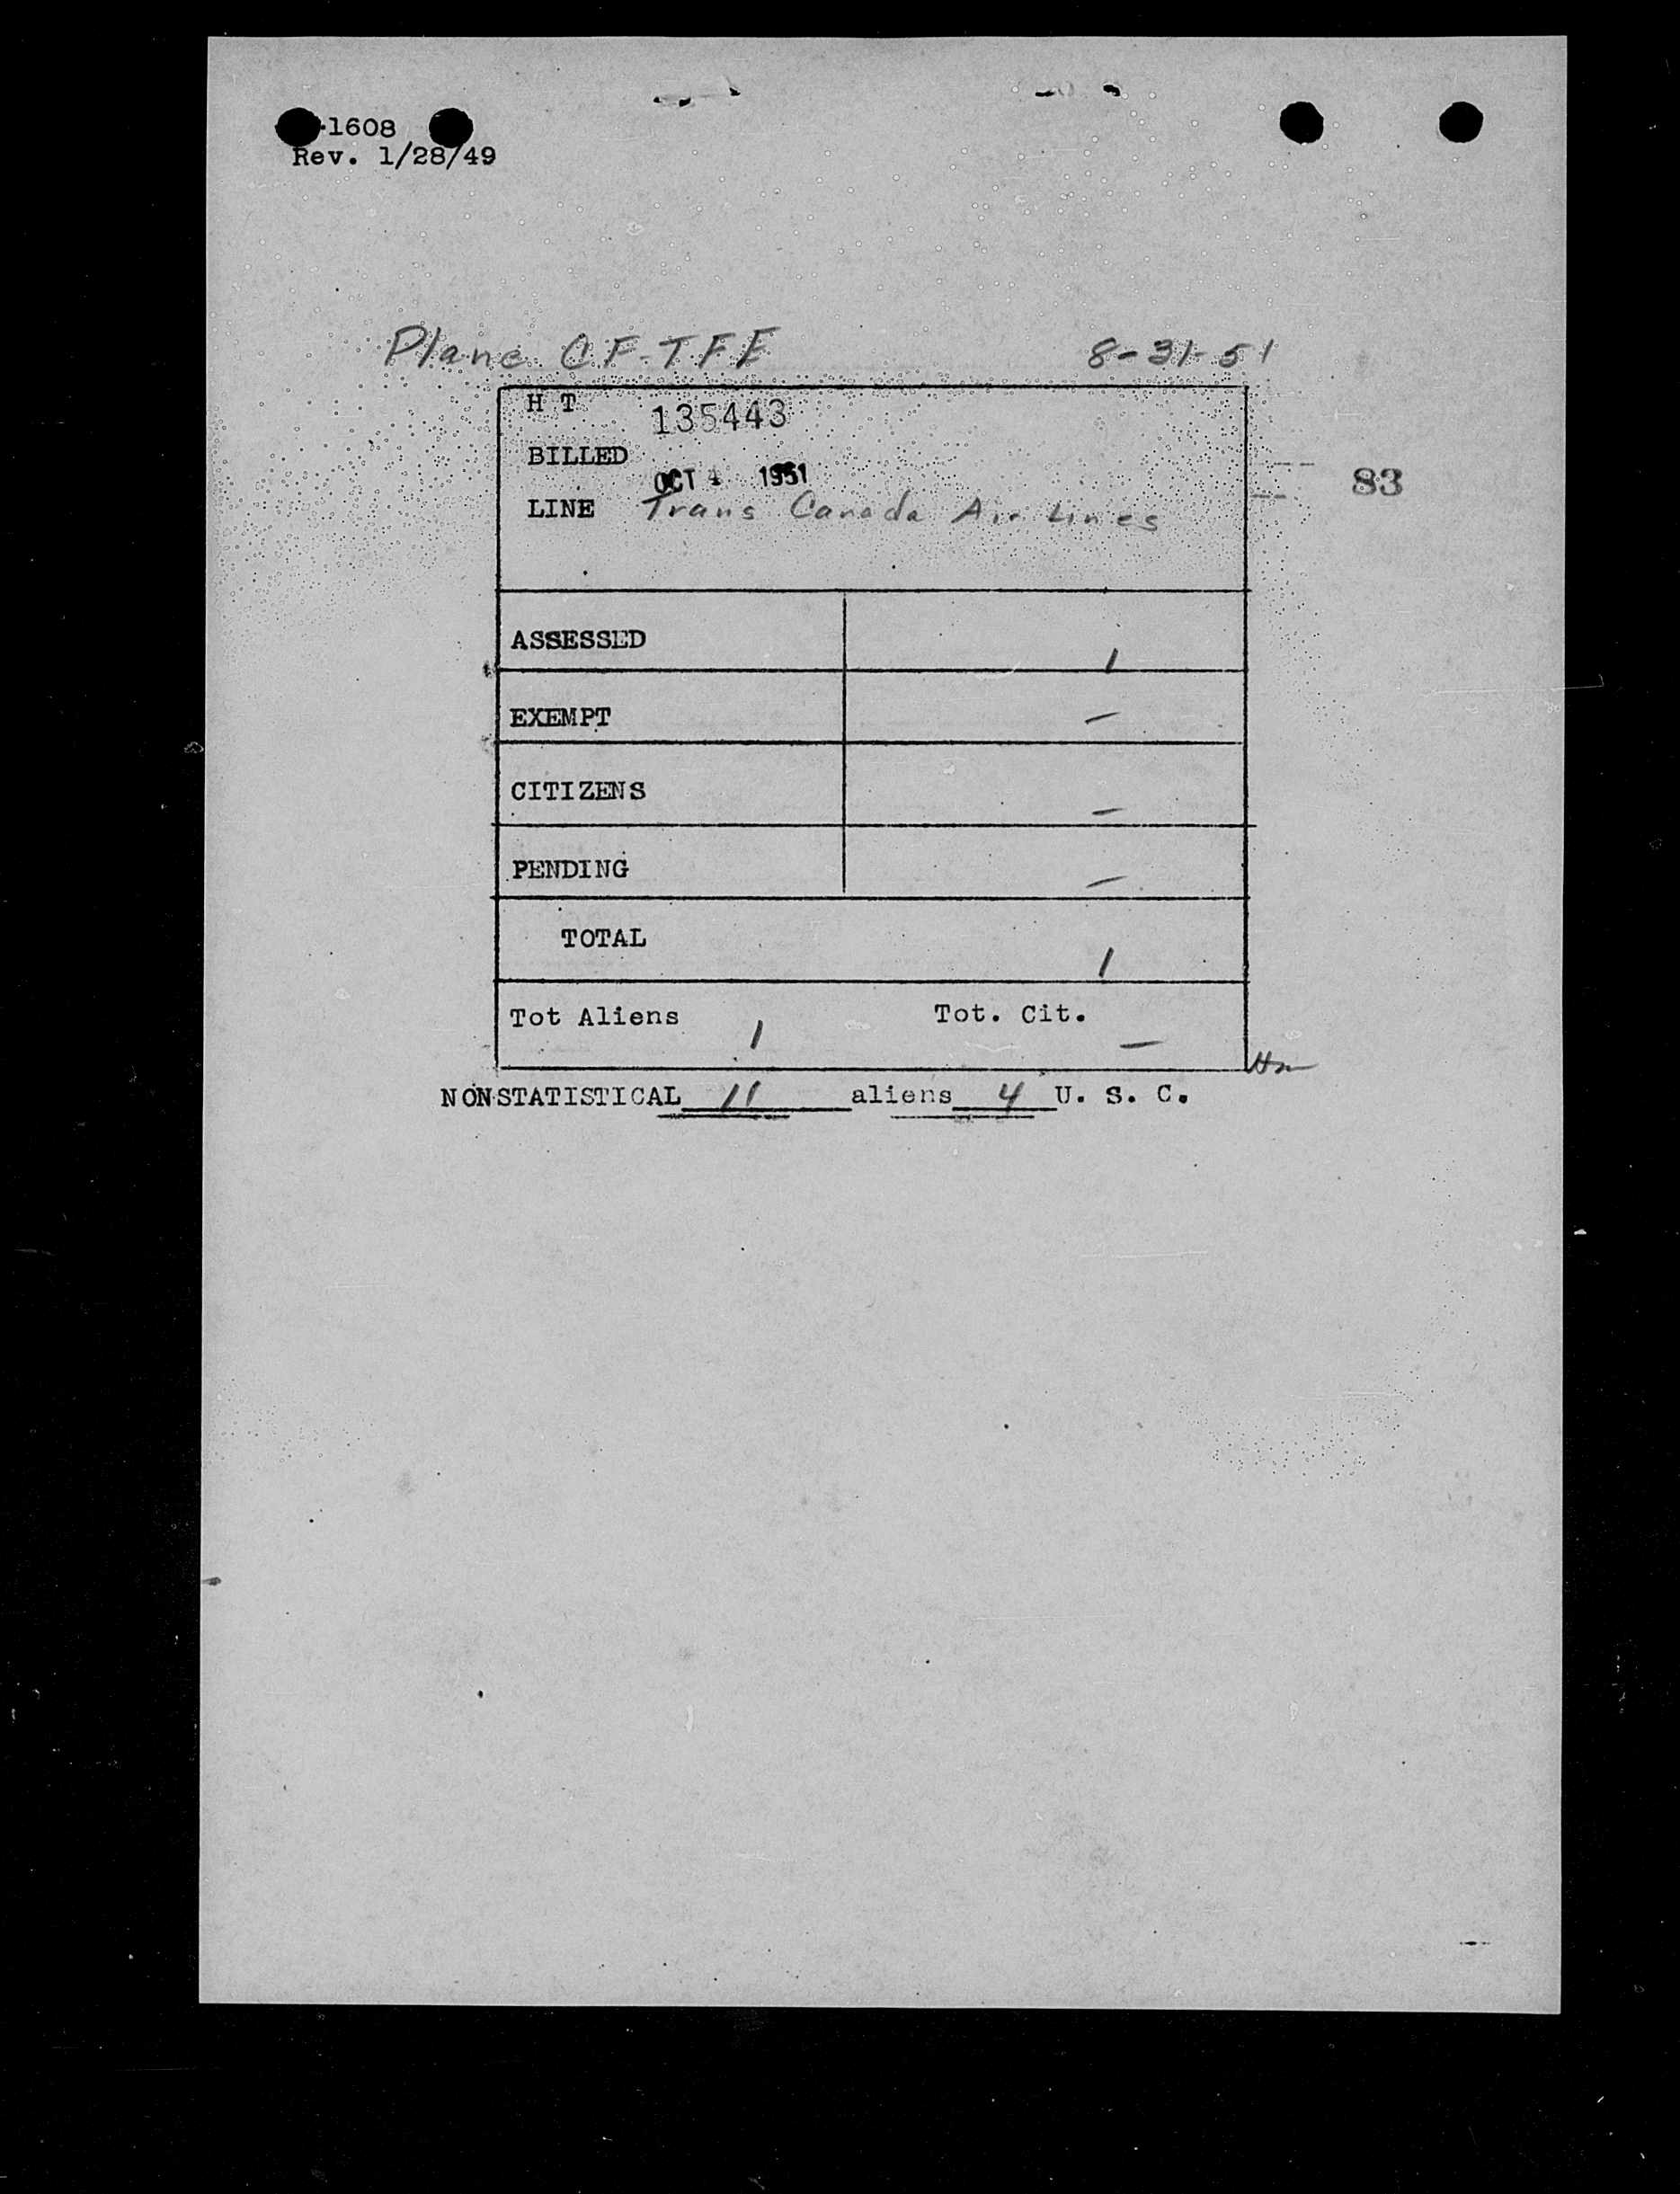 -1608
Rev. 1/28/49
Plane CF-TFE 8-31-51
H T 135443
BILLED
OCT 4 1951
83
LINE Trans Canada Air Lines
ASSESSED 1
EXEMPT —
CITIZENS —
PENDING —
TOTAL 1
Tot Aliens 1 Tot. Cit. —
NONSTATISTICAL 11 aliens 4 U. S. C.